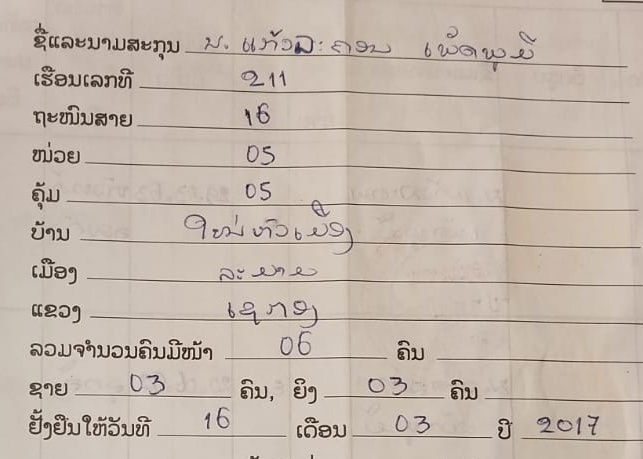 ຊື່ແລະນາມສະກຸນ ນ. ແກ້ວລະຄອນ ເພັດພູມີ
ເຮືອນເລກທີ 211
ຖະໜົນສາຍ 16
ໜ່ວຍ 05
ຄຸ້ມ 05
ບ້ານ ໃໝ່ຫົວເມືອງ
ເມືອງ ລະມາມ
ແຂວງ ເຊກອງ
ລວມຈຳນວນຄົນມີໜ້າ 06 ຄົນ
ຊາຍ 03 ຄົນ, ຍິງ 03 ຄົນ
ຢັ້ງຢືນໃຫ້ວັນທີ 16 ເດືອນ 03 ປີ 2017